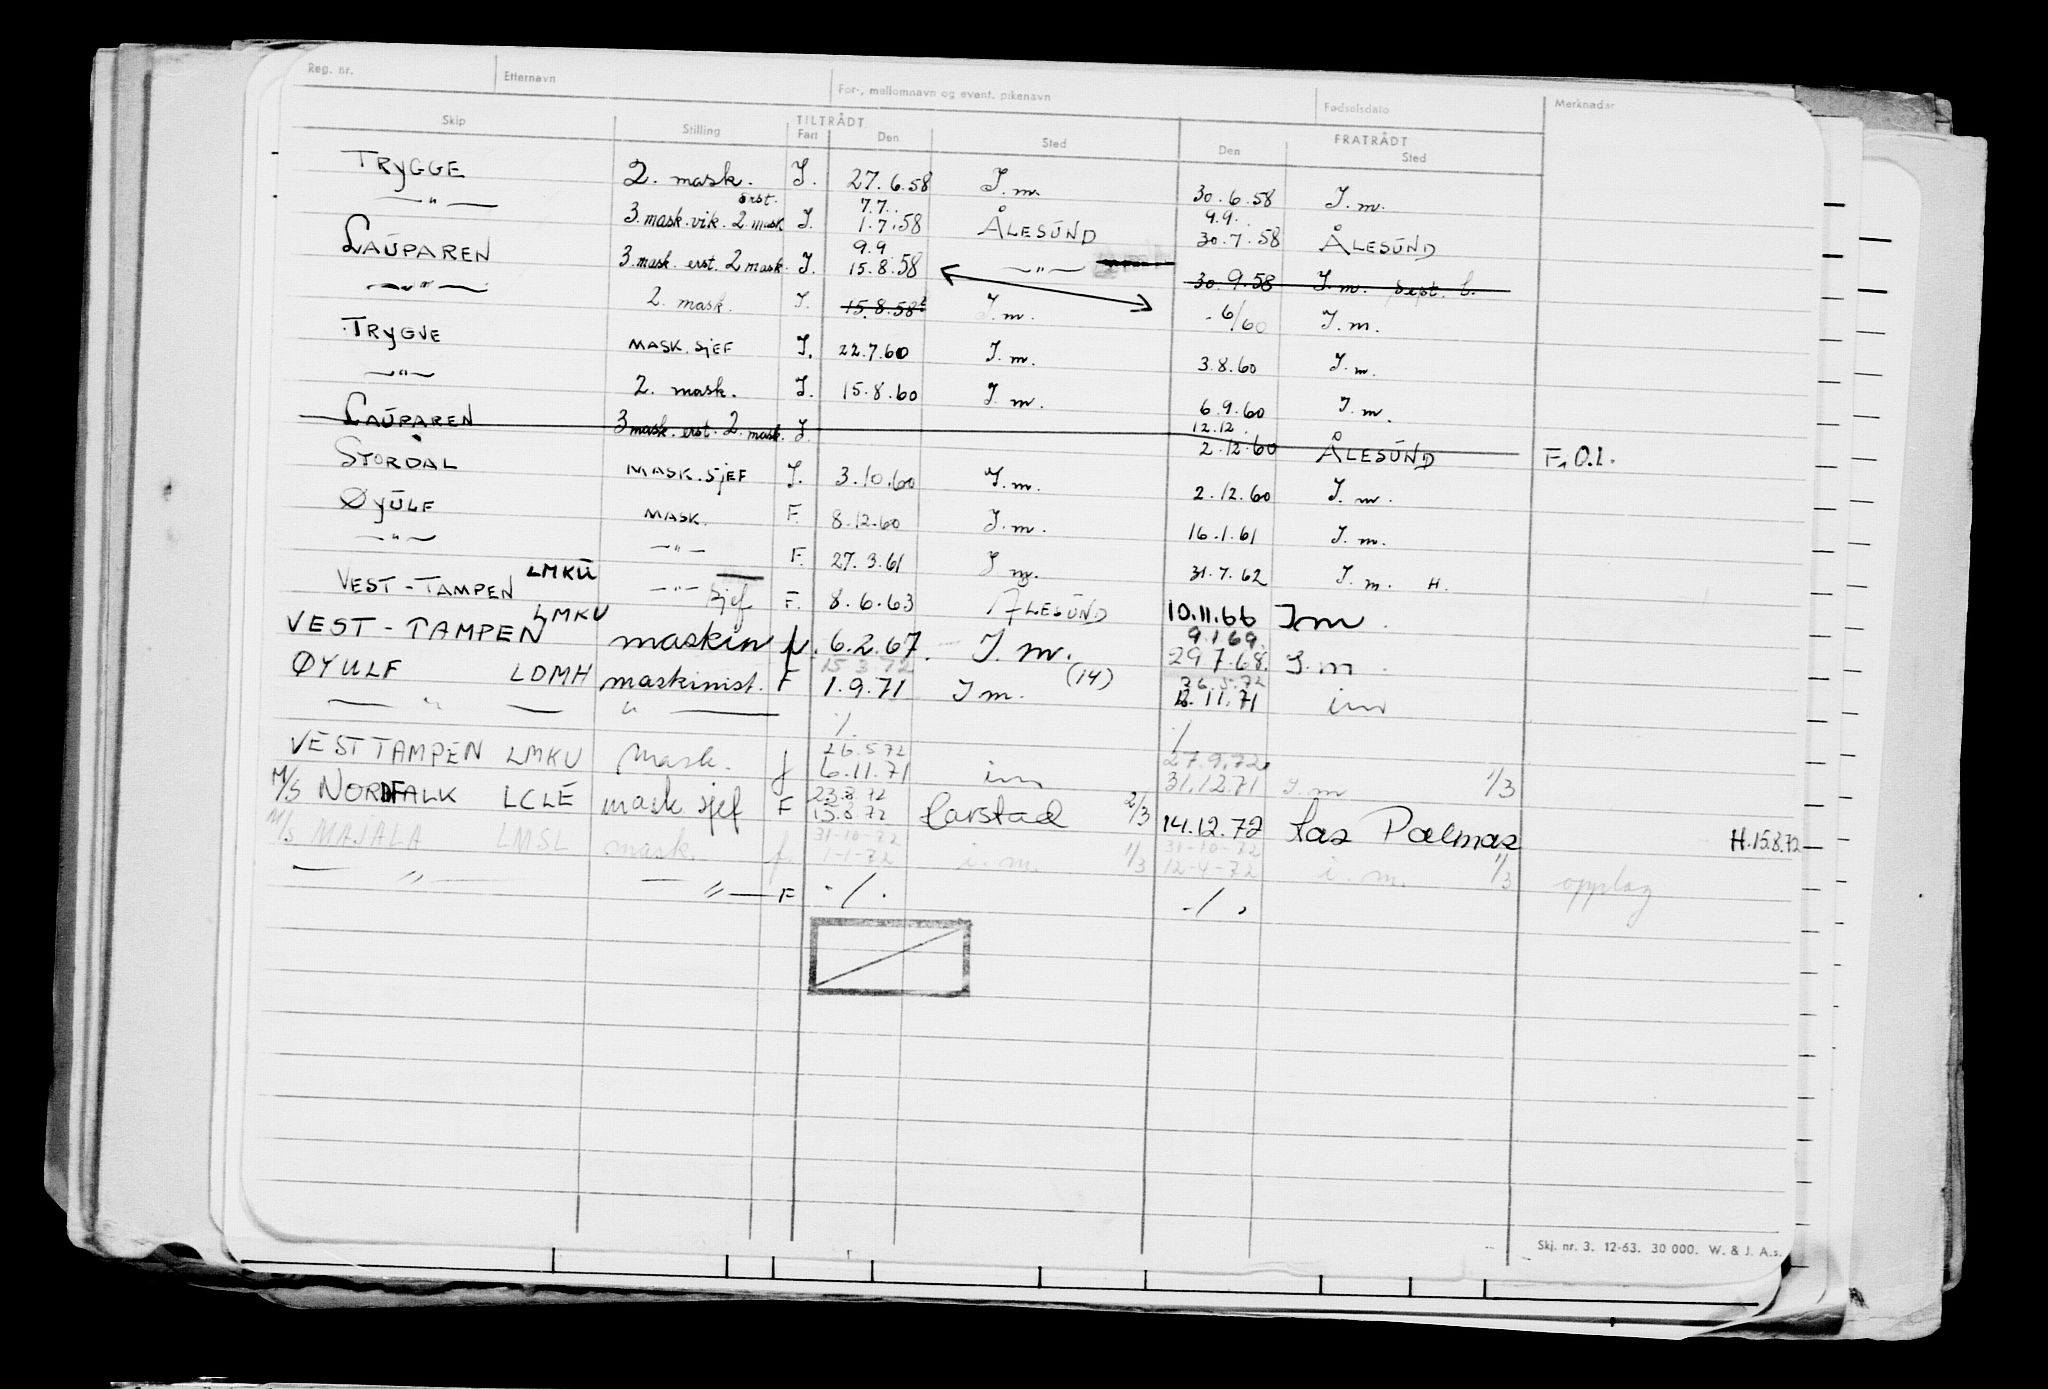 Reg. nr. Etternavn For-, mellomnavn og event. pikenavn Fødselsdato Merknader
TILTRÅDT FRATRÅDT
Skip Stilling Fart Den Sted Den Sted
TRYGGE 2. mask. I. 27.6.58 I.m. 30.6.58 I.m.
erst. 7.7. 9.9.
—"— 3.mask.vik. 2.mask I. 1.7.58 ÅLESUND 30.7.58 ÅLESUND
9.9
LAUPAREN 3.mask. erst. 2 mask. I. 15.8.58 —"— 30.9.58 I.m. Sept. b.
—"— 2. mask. I. 15.8.58 I.m. - 6/60 I.m.
TRYGVE MASK.SJEF I. 22.7.60 I.m. 3.8.60 I.m.
—"— 2. mask. I. 15.8.60 I.m. 6.9.60 I.m.
12.12.
LAUPAREN 3 mask. erst. 2. mask. I. 2.12.60 ÅLESUND F.O.I.
STORDAL MASK.SJEF I. 3.10.60 I.m. 2.12.60 I.m.
ØYULF MASK. F. 8.12.60 I.m. 16.1.61 I.m.
—"— —"— F. 27.3.61 I m. 31.7.62 I.m. H.
VEST-TAMPEN LMKU —"— Sjef F. 8.6.63 ÅLESUND 10.11.66 Im.
9.1.69.
VEST-TAMPEN LMKU maskin f. 6.2.67. I.m. 29.7.68. I.m.
15.3.72 26.5.72
ØYULF LDMH maskinist. F 1.9.71 Im. (14) 11.71 im
—"— " — ./. ./.
26.5.72 27.9.72
VESTTAMPEN LMKU Mask. f 6.11.71 im 31.12.71 I.m 1/3
23.8.72
M/S NORDFALK LCLE mask sjef F 15.8.72 Harstad 2/3 14.12.72 Las Palmas H.15.8.72
31-10-72 31-10-72
M/S MAJALA LMSL mask. f. 1-1-72 i.m. 1/3 12-4-72 i.m. 1/3 opplag
—"— —"— F ./. ./.
Skj. nr. 3. 12-63. 30 000. W. & J. A.s.